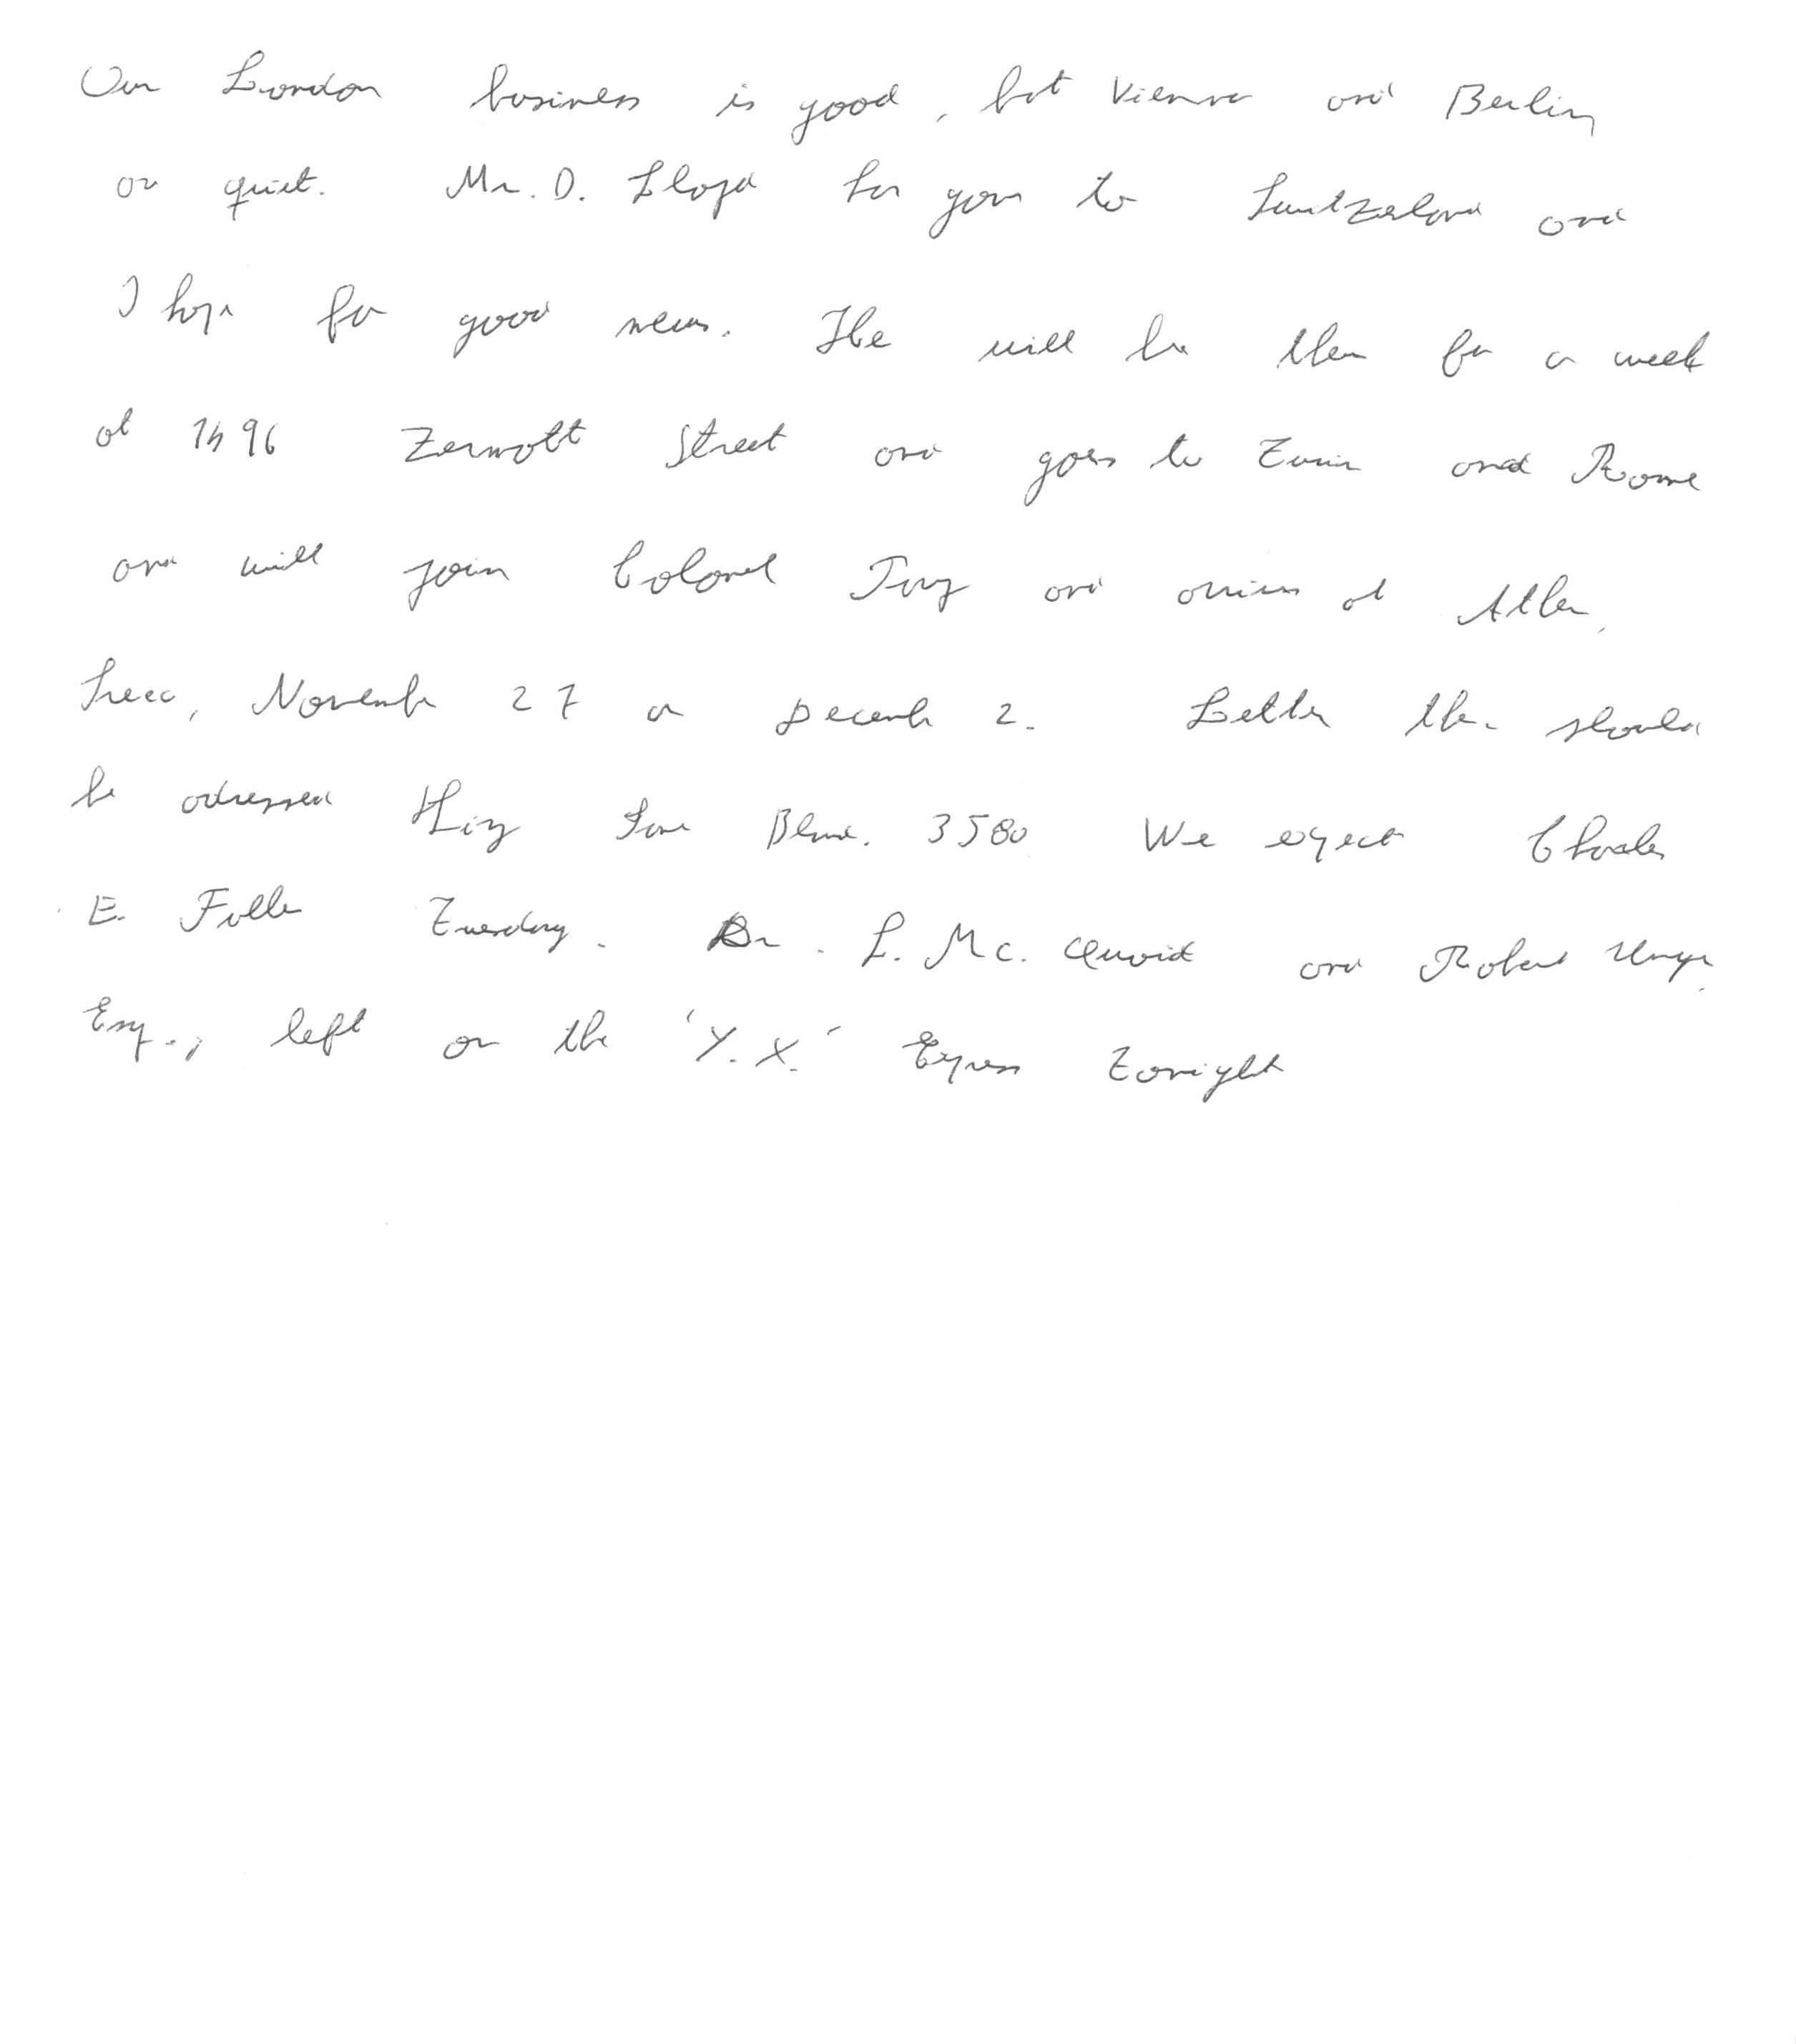 Our London business is good, but Vienna and Berlin
are quiet. Mr. D. Lloyd has gone to Switzerland and
I hope for good news. He will be there for a week
at 1496 Zermott Street and goes to Turin and Rome
and will join Colonel Parry and arrives at Athens,
Greece, November 27 or December 2. Letters there should
be addressed King James Blvd. 3580 We expect Charles
E. Fuller Tuesday. Dr. L. Mc. Quaid and Robert Unger,
Esq., left on the 'Y.X.' Express Tonight